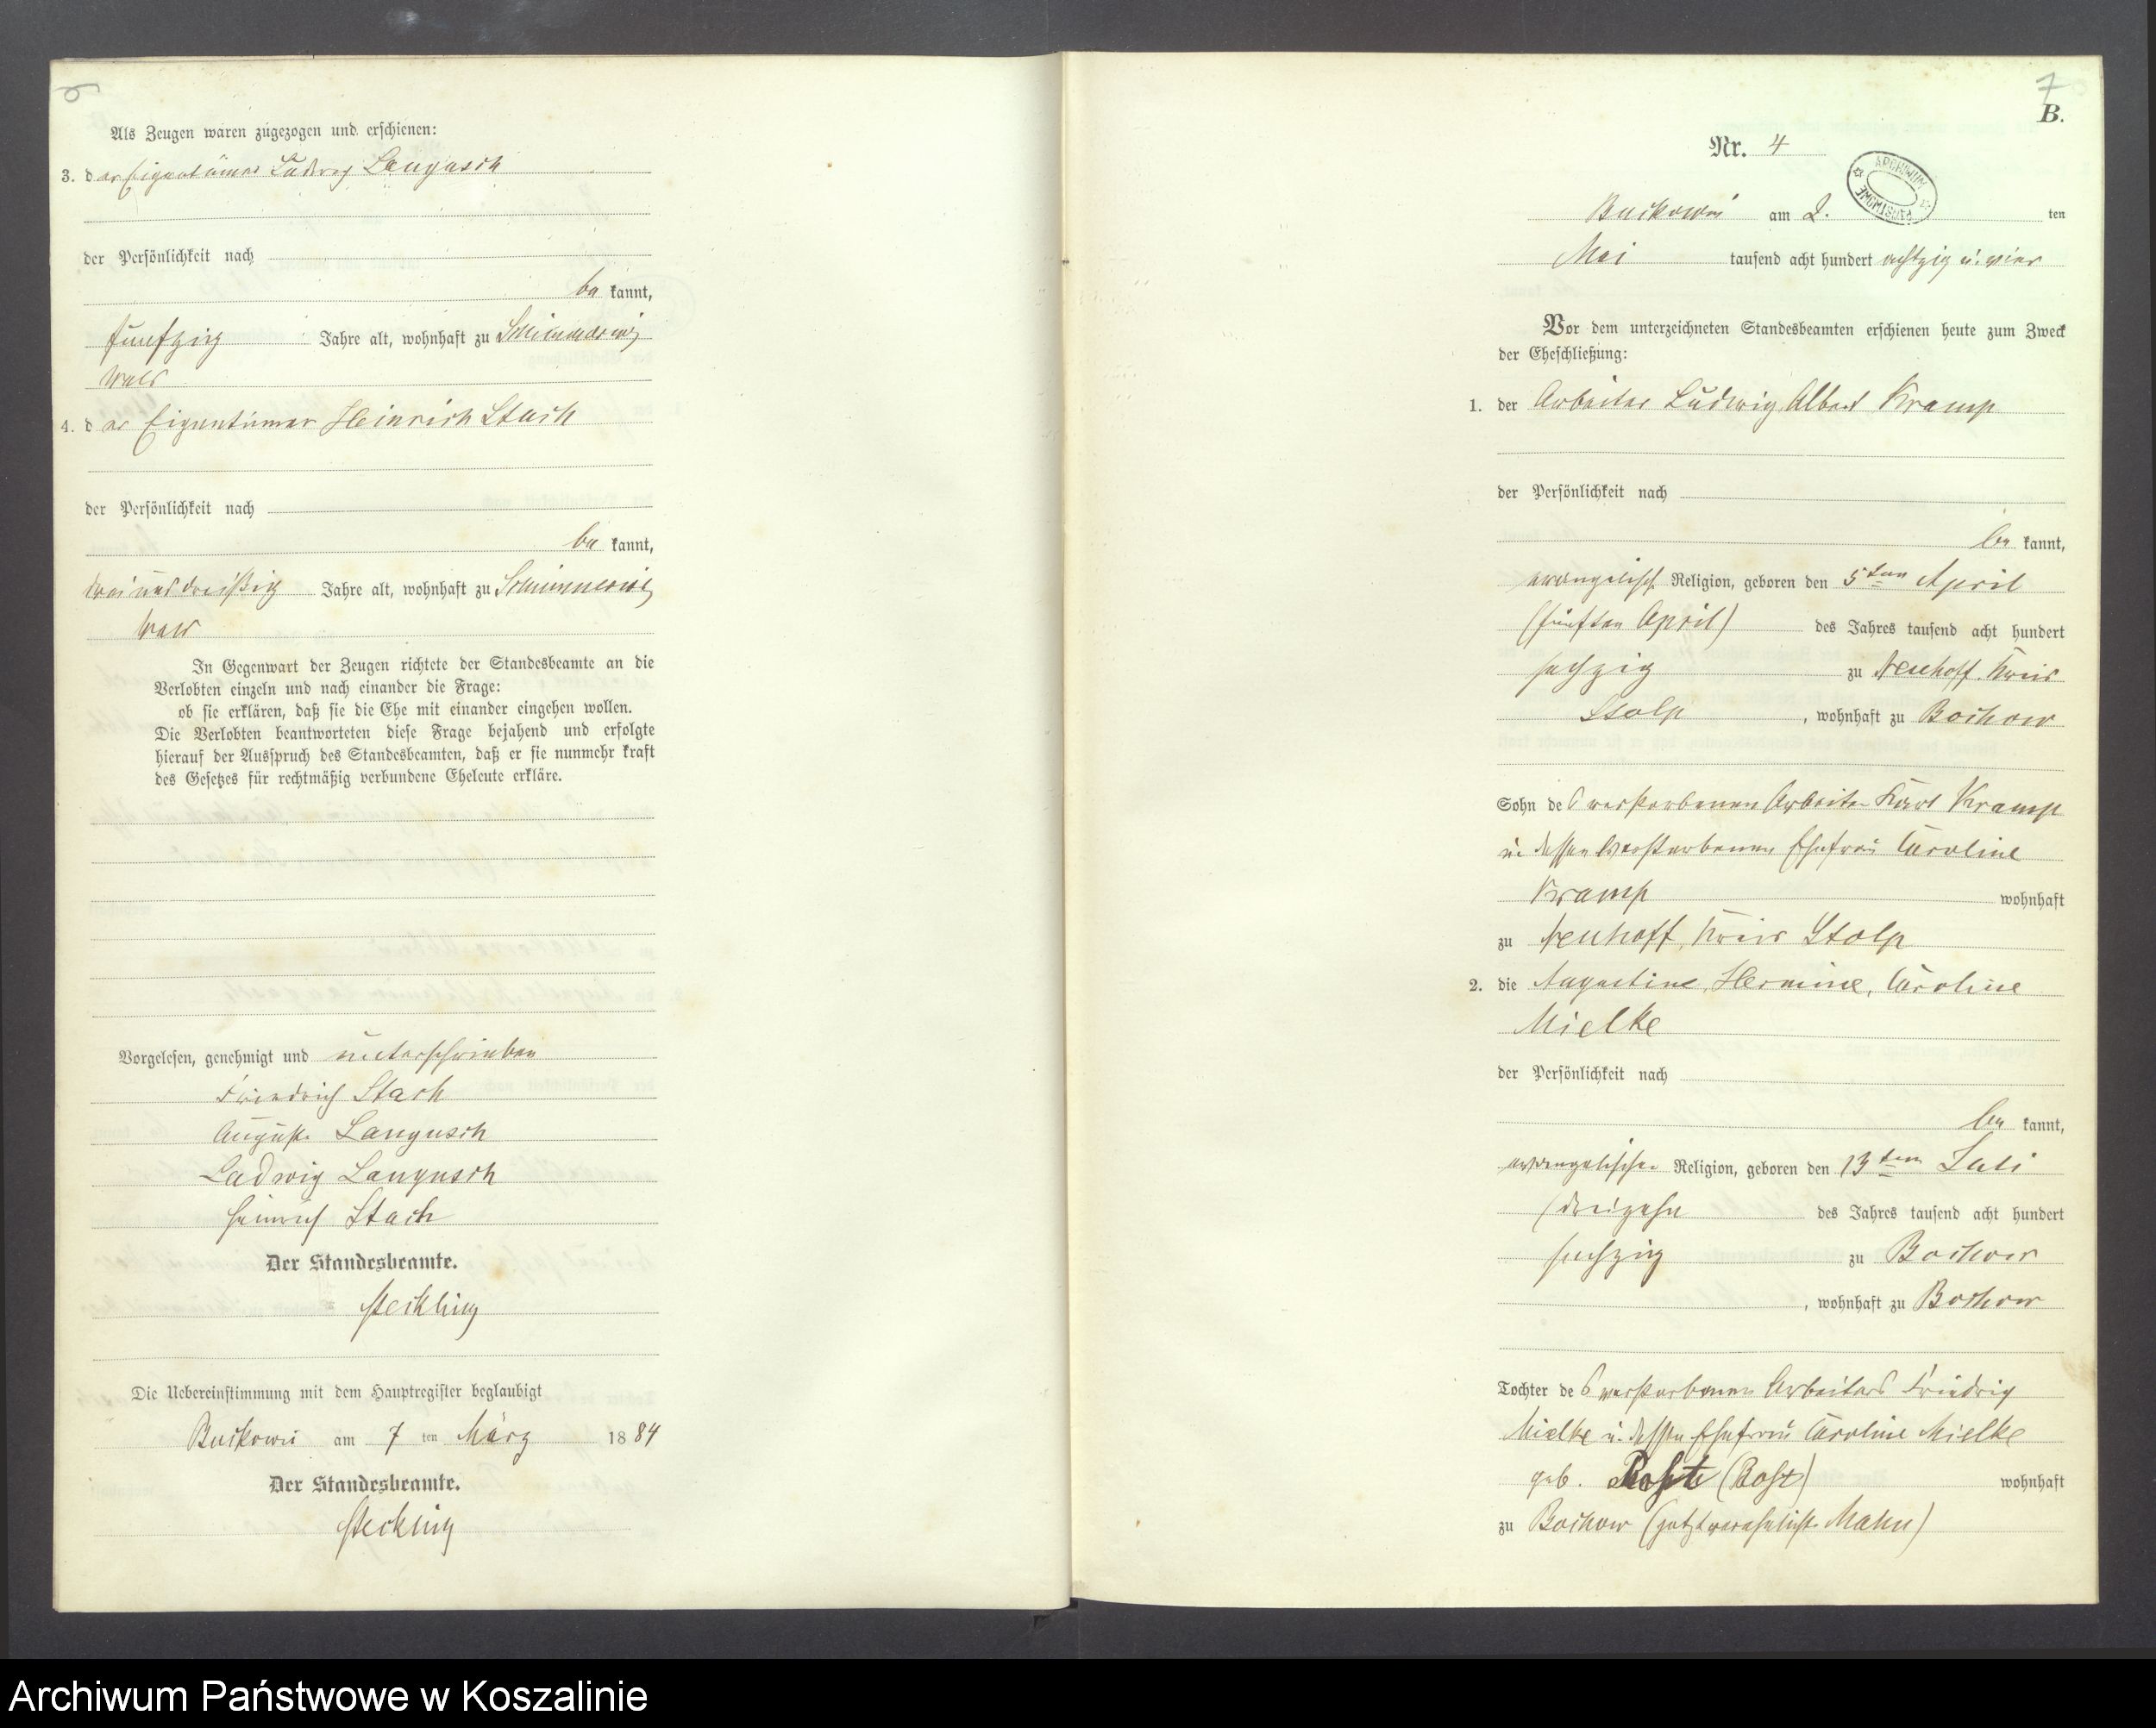 6
Als Zeugen waren zugezogen und erschienen:
3. der Eigentümer Ludwig Langusch
der Persönlichkeit nach
be kannt,
fünfzig Jahre alt, wohnhaft zu
4. der Eigentümer Heinrich Stach
der Persönlichkeit nach
be kannt,
und dreißig Jahre alt, wohnhaft zu
In Gegenwart der Zeugen richtete der Standesbeamte an die
Verlobten einzeln und nach einander die Frage:
ob sie erklären, daß sie die Ehe mit einander eingehen wollen.
Die Verlobten beantworteten diese Frage bejahend und erfolgte
hierauf der Ausspruch des Standesbeamten, daß er sie nunmehr kraft
des Gesetzes für rechtmäßig verbundene Eheleute erkläre.
Vorgelesen, genehmigt und unterschrieben
Friedrich Stach
Auguste Langusch
Ludwig Langusch
Heinrich Stach
Der Standesbeamte.
Steckling
Die Uebereinstimmung mit dem Hauptregister beglaubigt
Buckowin am 7 ten März 1884
Der Standesbeamte.
Steckling
7
B.
Nr. 4
ARCHIWUM PAŃSTWOWE
Buckowin am 2. ten
Mai tausend acht hundert achtzig u. vier
Vor dem unterzeichneten Standesbeamten erschienen heute zum Zweck
der Eheschließung:
1. der Arbeiter Ludwig Albert Kramp
der Persönlichkeit nach
be kannt,
evangelisch Religion, geboren den 5ten April
(fünften April) des Jahres tausend acht hundert
sechzig zu Neuhoff, Kreis
Stolp, wohnhaft zu Bochow
Sohn des verstorbenen Arbeiter Karl Kramp
u. dessen verstorbenen Ehefrau Caroline
Kramp wohnhaft
zu Neuhoff, Kreis Stolp
2. die Augustine, Hermine, Caroline
Mielke
der Persönlichkeit nach
be kannt,
evangelischer Religion, geboren den 13ten Juli
(dreizehn des Jahres tausend acht hundert
sechzig zu Bochow
, wohnhaft zu Bochow
Tochter des verstorbenen Arbeiters Friedrig
Mielke u. dessen Ehefrau Caroline Mielke
geb. (Bost) wohnhaft
zu Bochow (jetzt verehelichte Mahn)
Archiwum Państwowe w Koszalinie